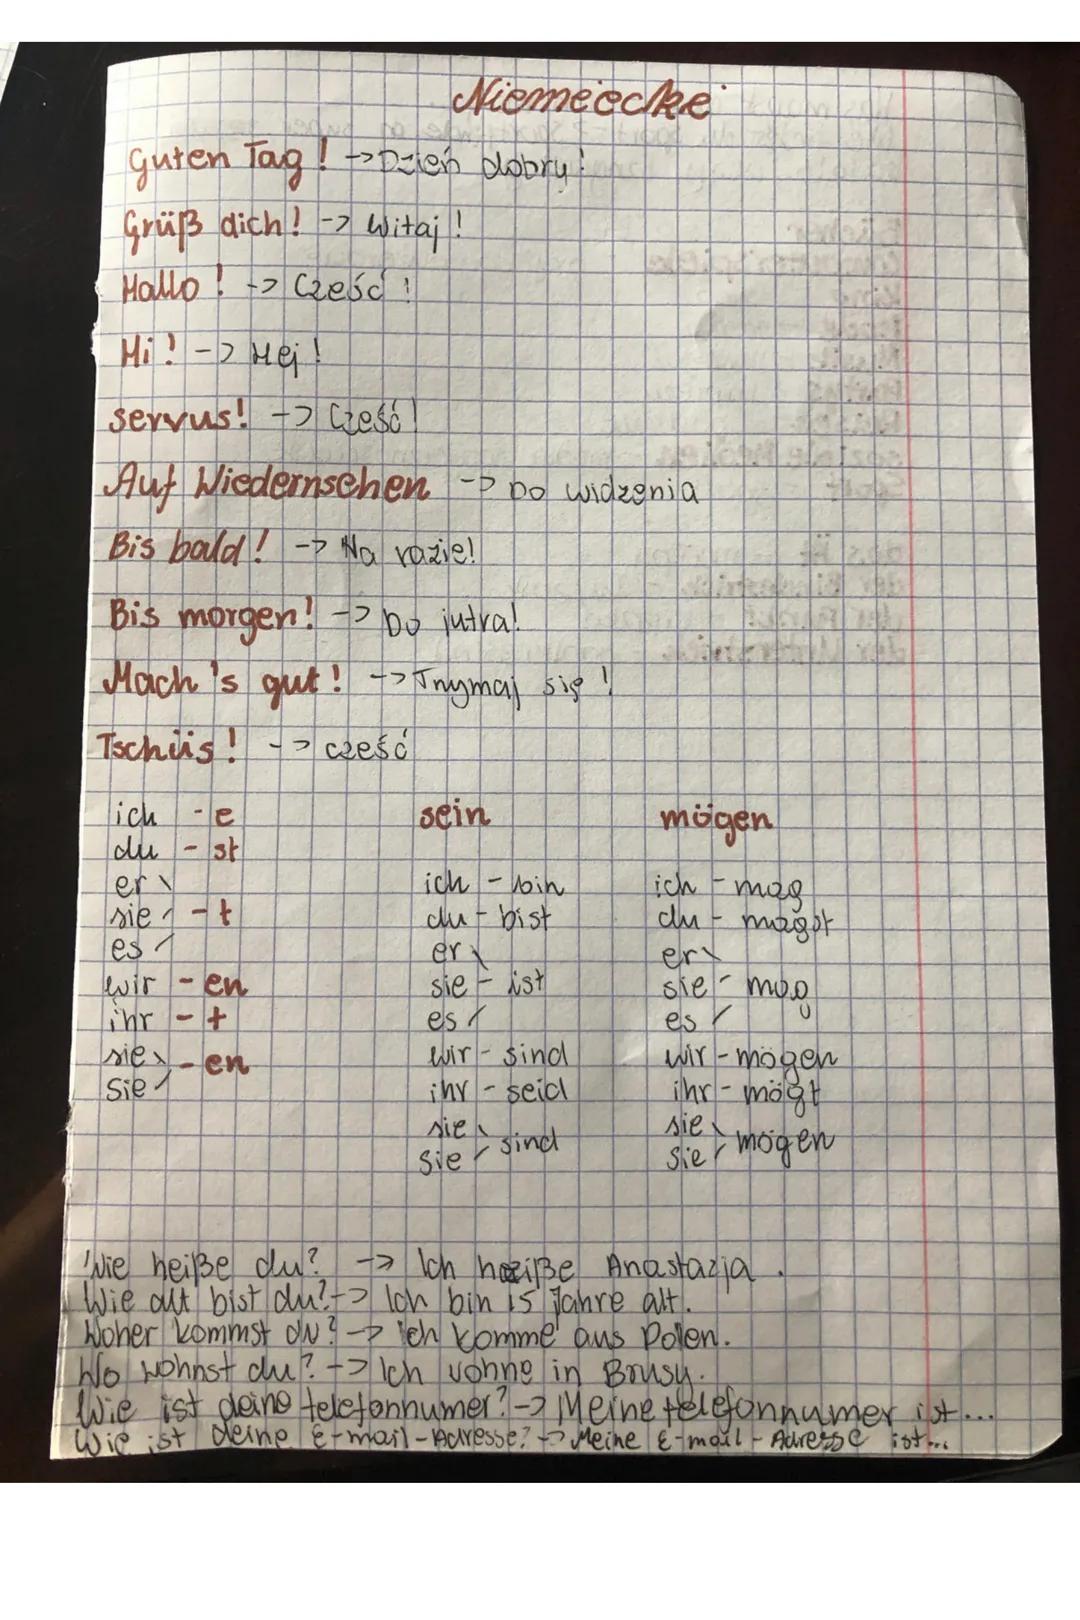 Niemieckie
Guten Tag! -> Dzień dobry!
Grüß dich! -> Witaj!
Hallo! -> Cześć!
Hi! -> Hej!
servus! -> Cześć!
Auf Wiedernsehen -> Do widzenia
Bis bald! -> Na razie!
Bis morgen! -> Do jutra!
Mach's gut! -> Trzymaj się!
Tschüs! -> cześć
ich -e
du -st
er
sie -t
es
wir -en
ihr -t
sie
Sie -en
sein
ich - bin
du - bist
er
sie - ist
es
wir - sind
ihr - seid
sie
Sie sind
mögen
ich - mag
du - magst
er
sie - mag
es
wir - mögen
ihr - mögt
sie
Sie mögen
Wie heiße du? -> Ich heiße Anastazja.
Wie alt bist du? -> Ich bin 15 Jahre alt.
Woher kommst du? -> ich komme aus Polen.
Wo wohnst du? -> Ich wohne in Brusy.
Wie ist deine telefonnumer? -> Meine telefonnumer ist...
Wie ist deine E-mail-Adresse? -> Meine E-mail-Adresse ist...